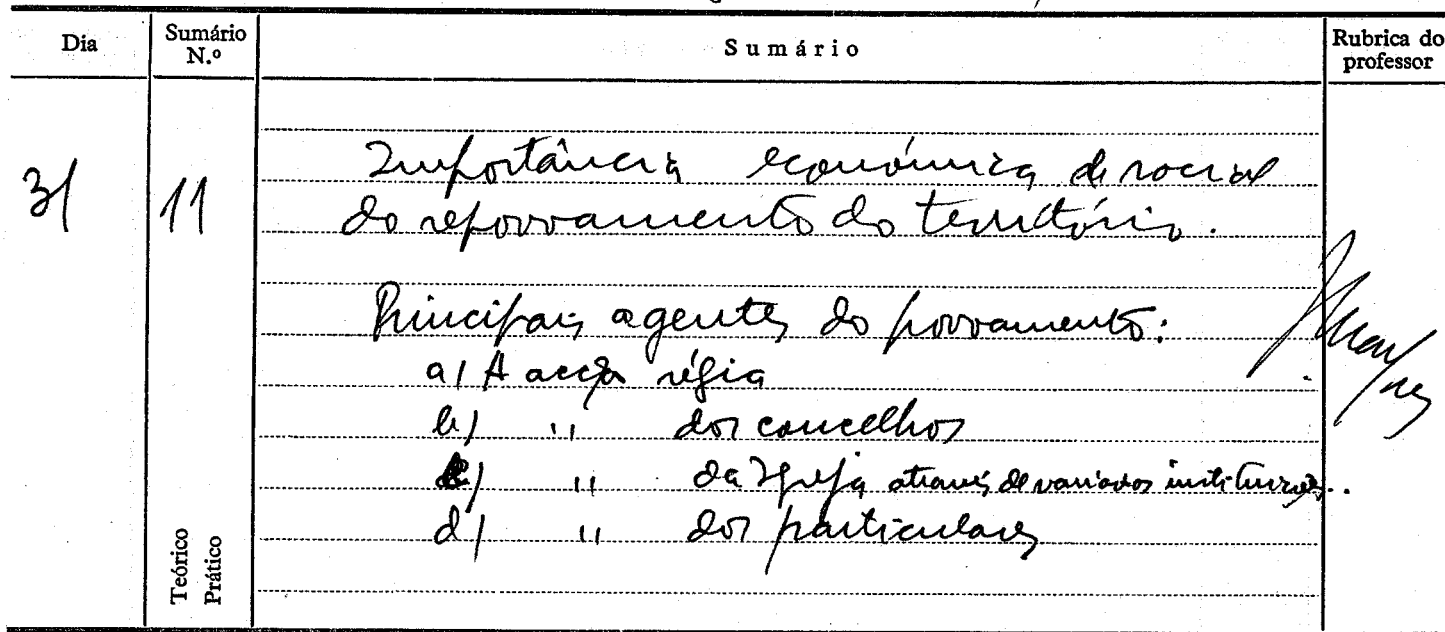 Dia
Sumário N.º
Sumário
Rubrica do professor
31
11
Importância económica e social
do repovoamento do território.
Principais agentes do povoamento:
a) A acção régia
b) " dos concelhos
c) " da Igreja através de variadas instituições..
d) " dos particulares
Teórico
Prático